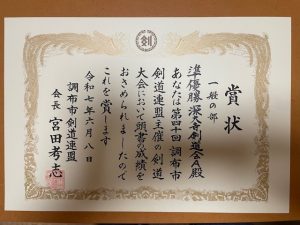 剣
賞状
一般の部
準優勝 会A殿
あなたは第四十回 調布市
剣道連盟主催の剣道
大会において頭書の成績を
おさめられましたので
これを賞します
令和七年六月八日
調布市剣道連盟
会長 宮田考志